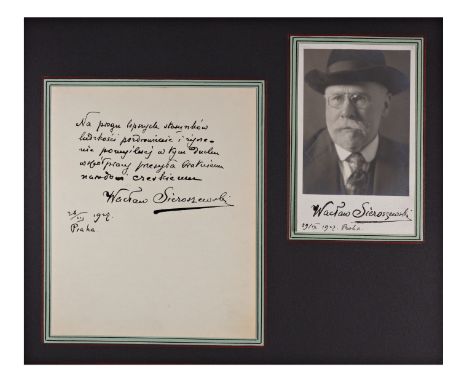 Na progu lepszych stosunków
ludzkości pozdrowienie i życze-
nie pomyślnej w tym duchu
współpracy przesyła bratniemu
narodowi czeskiemu
Wacław Sieroszewski
1927.
Praha.
Wacław Sieroszewski
1927. Praha.